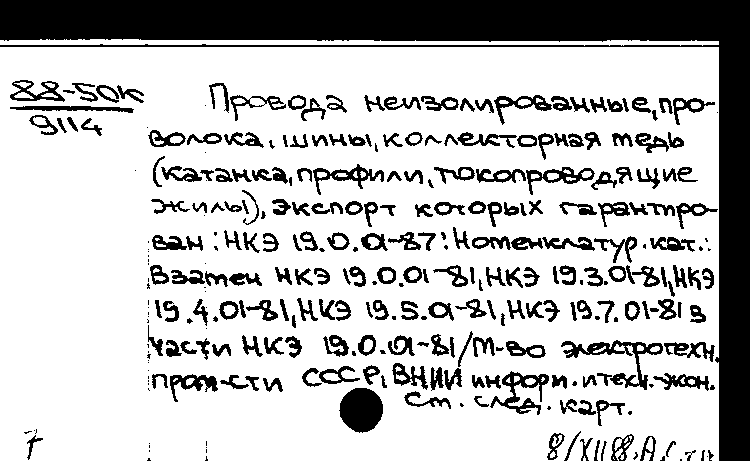 88-50к
9114
Провода неизолированные, про-
волока, шины, коллекторная медь
(катанка, профили, токопроводящие
жилы), экспорт которых гарантиро-
ван: НКЭ 19.0.01-87: Номенклатур. кат.:
Взамен НКЭ 19.0.01-81, НКЭ 19.3.01-81, НКЭ
19.4.01-81, НКЭ 19.5.01-81, НКЭ 19.7.01-81 в
части НКЭ 19.0.01-81/М-во электротехн.
пром-сти СССР, ВНИИ информ. и техн.-экон.
См. след. карт.
7
8/XII 88.